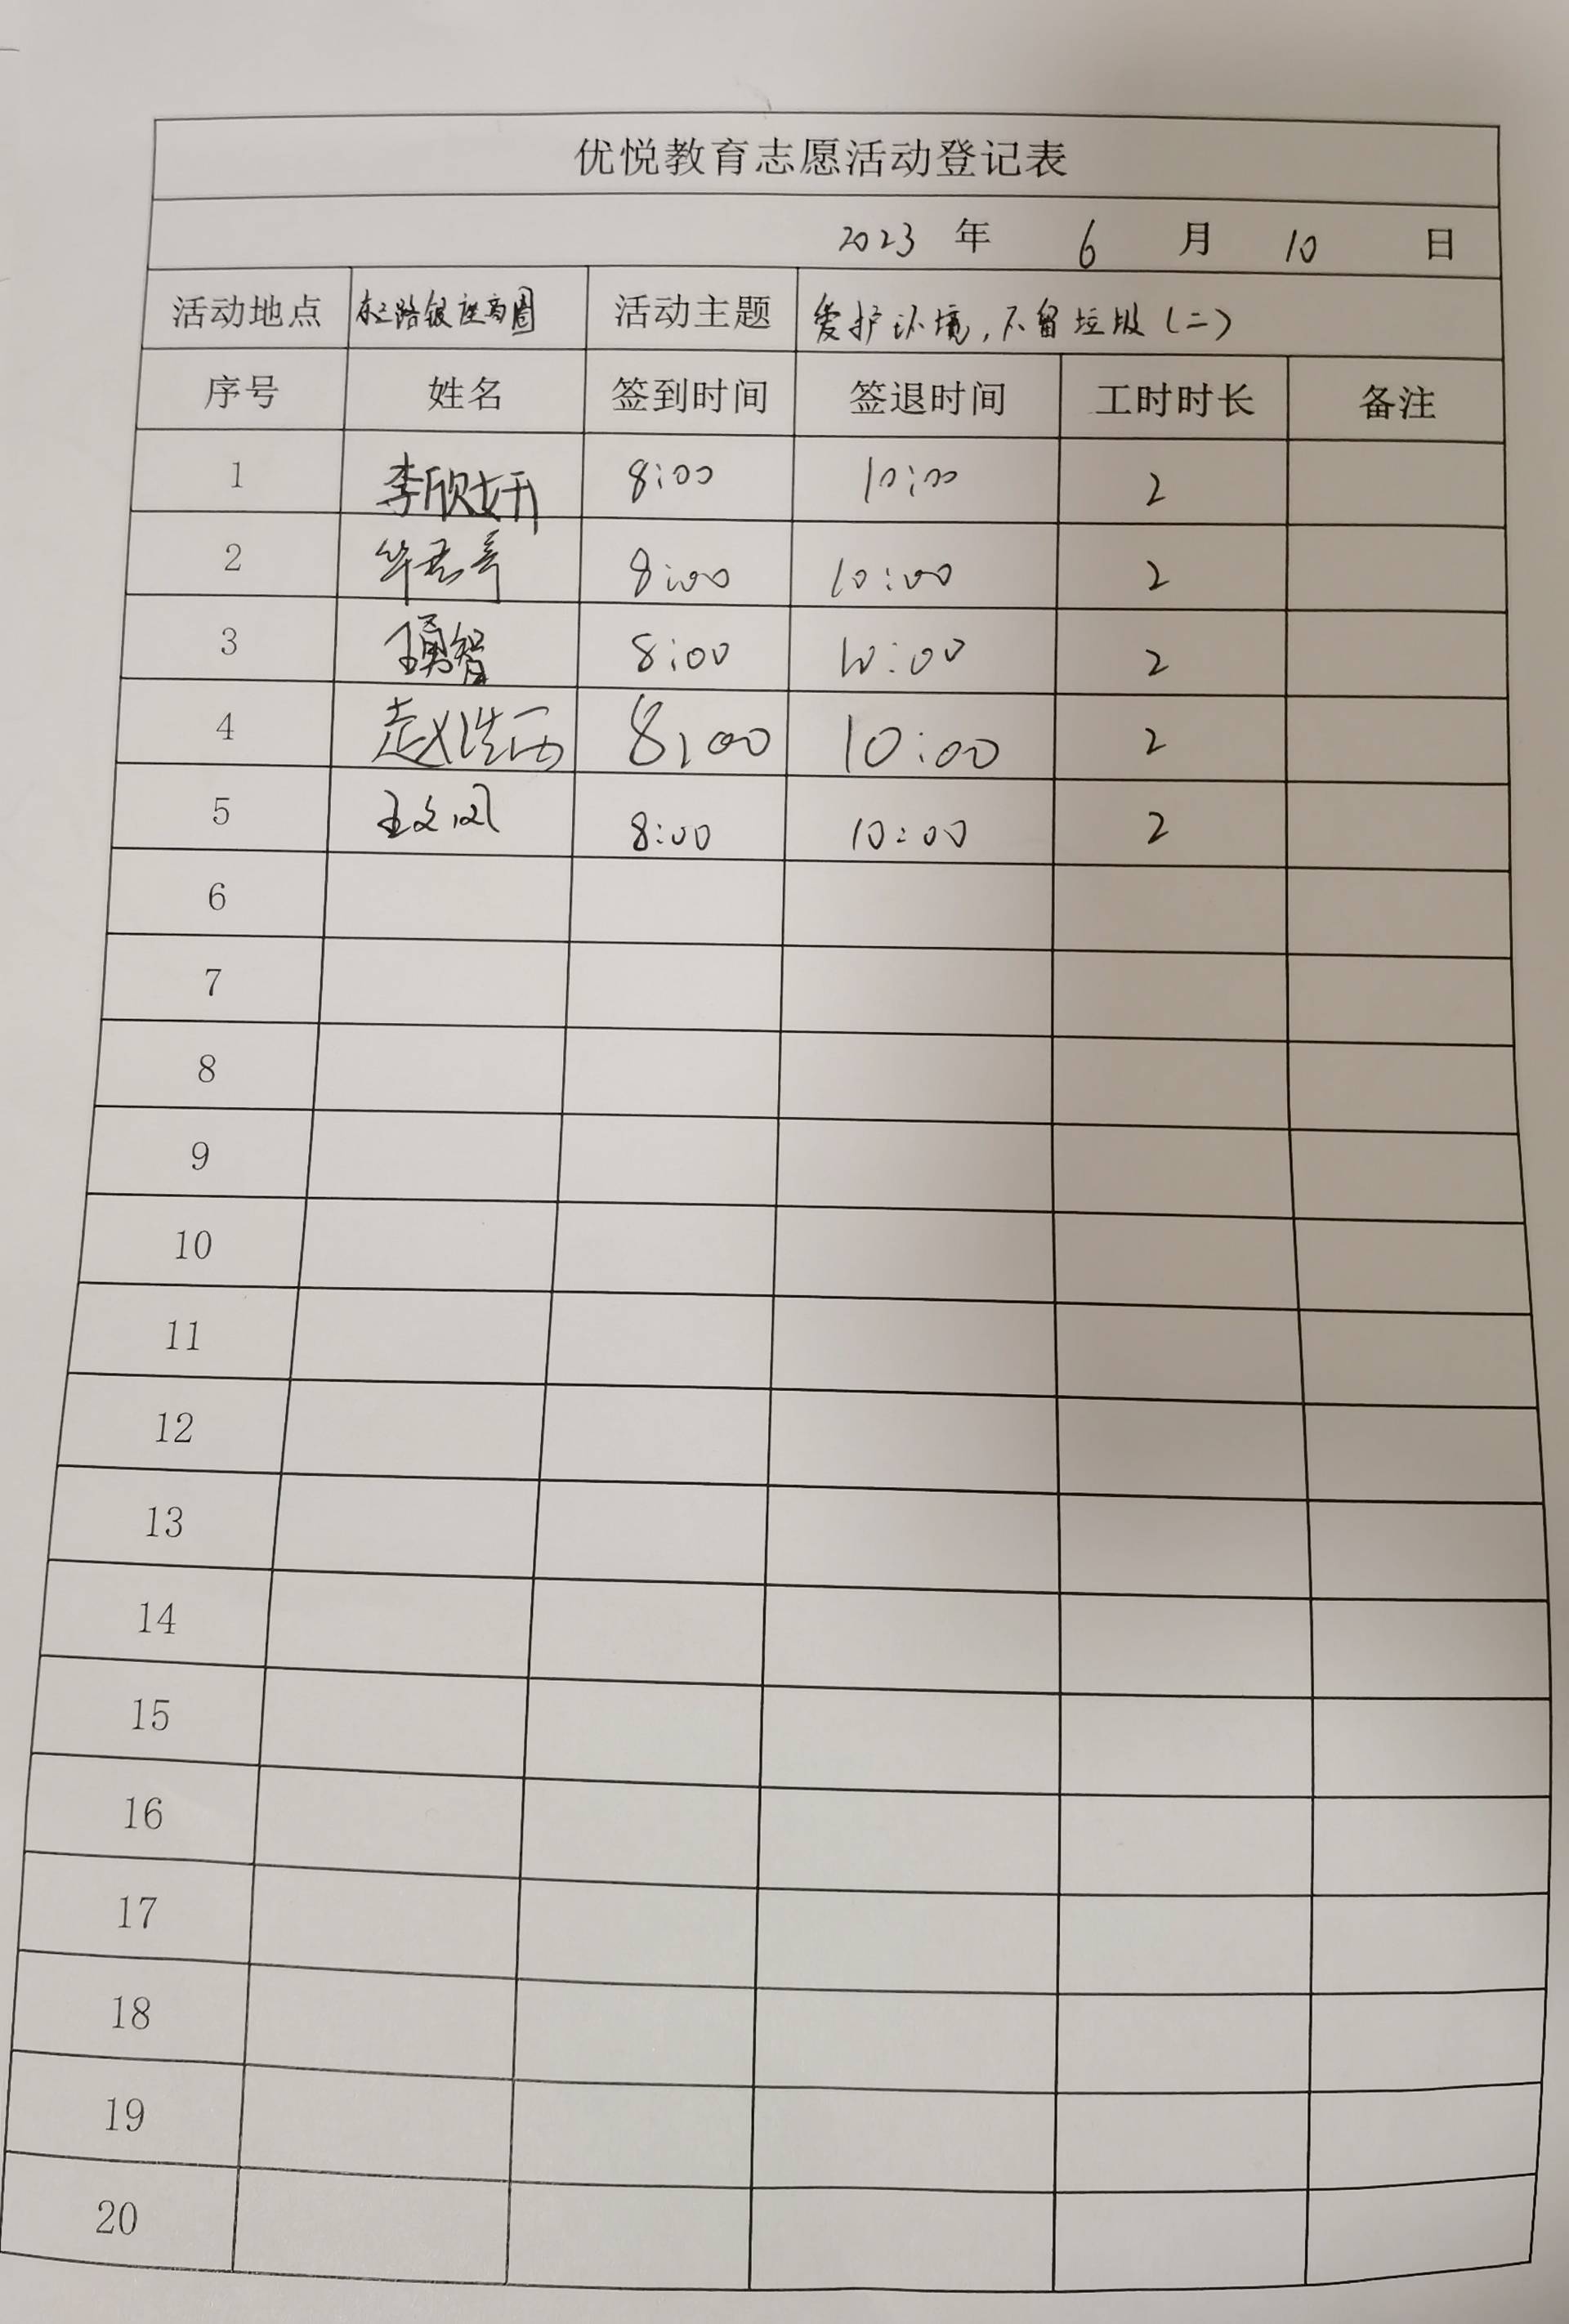 优悦教育志愿活动登记表
2023 年 6 月 10 日
活动地点 东三路银座商圈 活动主题 爱护环境,不留垃圾(二)
序号 姓名 签到时间 签退时间 工时时长 备注
1 李欣妍 8:00 10:00 2
2 8:00 10:00 2
3 王勇智 8:00 10:00 2
4 赵浩西 8:00 10:00 2
5 王文凤 8:00 10:00 2
6
7
8
9
10
11
12
13
14
15
16
17
18
19
20